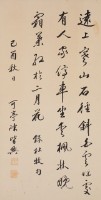 遠上寒山石徑斜白雲深處
有人家停車坐愛楓林晚
霜葉紅於二月花 錄杜牧句
己酉秋日